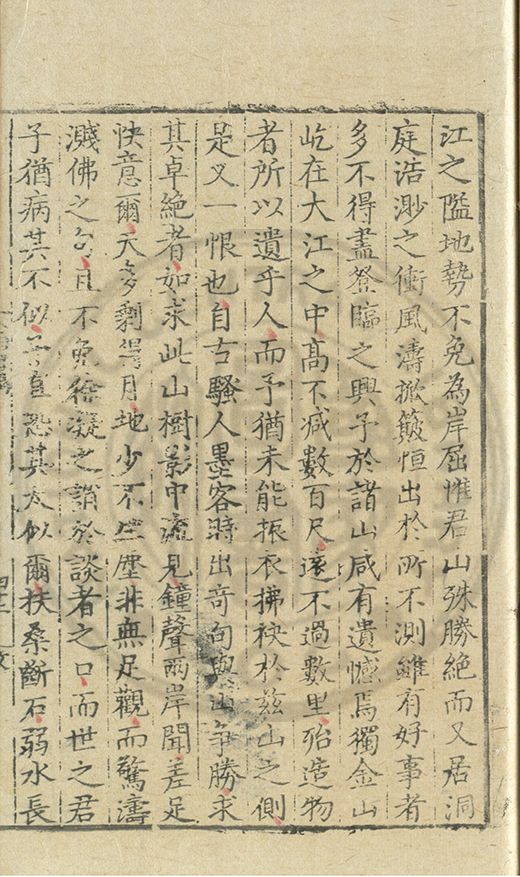 江之隘地勢不免為岸屈惟君山殊勝絕而又居洞
庭浩渺之衝風濤掀簸恒出於所不測雖有好事者
多不得盡登臨之興予於諸山咸有遺憾焉獨金山
屹在大江之中高不减數百尺遠不過數里殆造物
者所以遺乎人而予猶未能振衣拂袂於茲山之側
是又一恨也自古騷人墨客時出奇句與山爭勝求
其卓絕者如求此山樹影中流見鐘聲兩岸聞差足
快意爾天多剩得月地少不生塵非無足觀而驚濤
濺佛之句且不免徐凝之誚於談者之口而世之君
子猶病其不似予直恐其太似爾扶桑斷石弱水長